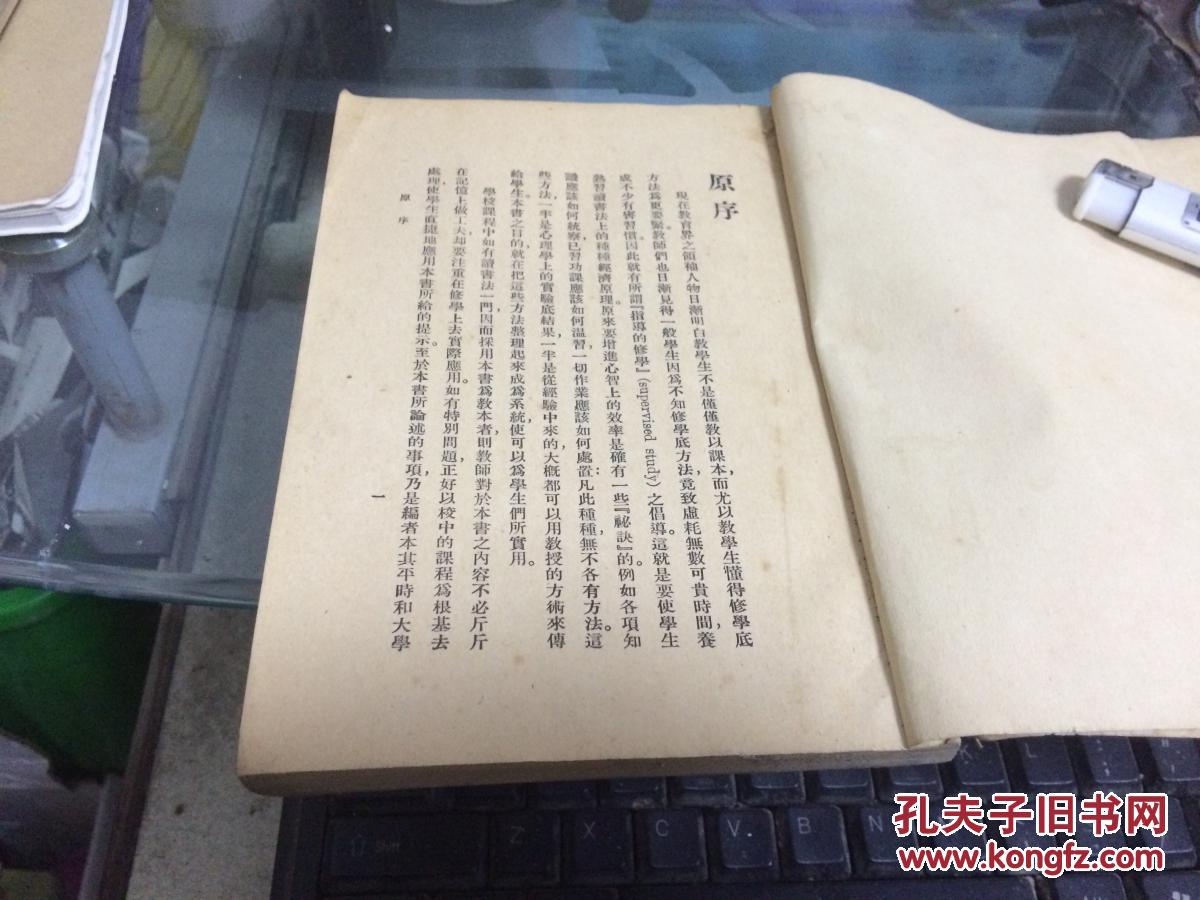 原序
現在教育界之領袖人物日漸明白教學生不是僅僅教以課本,而尤以教學生懂得修學底
方法為更要緊。教師們也日漸見得一般學生因為不知修學底方法,竟致虛耗無數可貴時間,養
成不少有害習慣。因此就有所謂『指導的修學』(supervised study)之倡導。這就是要使學生
熟習讀書法上的種種經濟原理。原來要增進心智上的效率是確有一些『祕訣』的。例如各項知
識應該如何統察,已習功課應該如何溫習,一切作業應該如何處置:凡此種種,無不各有方法。這
些方法,一半是心理學上的實驗底結果,一半是從經驗中來的,大概都可以用教授的方術來傳
給學生。本書之目的,就在把這些方法整理起來,成為系統,使可以為學生們所實用。
學校課程中如有讀書法一門,因而採用本書為教本者,則教師對於本書之內容不必斤斤
在記憶上做工夫,却要注重在修學上去實際應用。如有特別問題,正好以校中的課程為根基去
處理,使學生直捷地應用本書所給的提示。至於本書所論述的事項,乃是編者本其平時和大學
原序
一
Shift
Z
X
C
V
B
N
孔夫子旧书网
www.kongfz.com